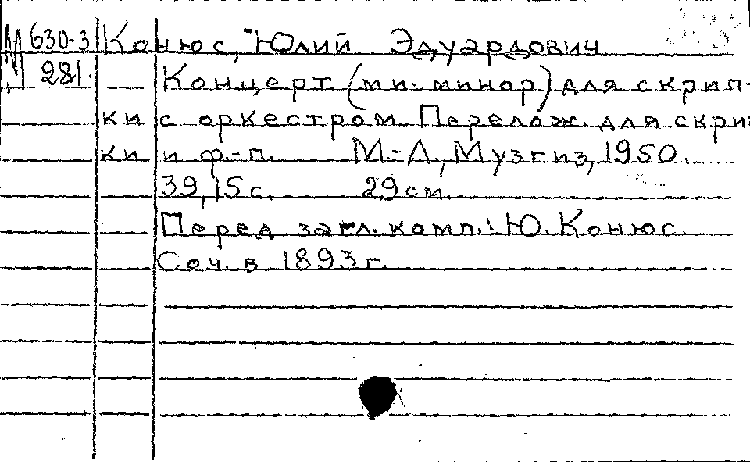 М 630-3 Конюс, Юлий Эдуардович
281 Концерт (ми-минор) для скрип-
ки с оркестром. Перелож. для скрип
ки и ф-п. М-Л, Музгиз, 1950.
39, 15 с. 29 см.
Перед загл. комп.: Ю. Конюс
Соч. в 1893 г.